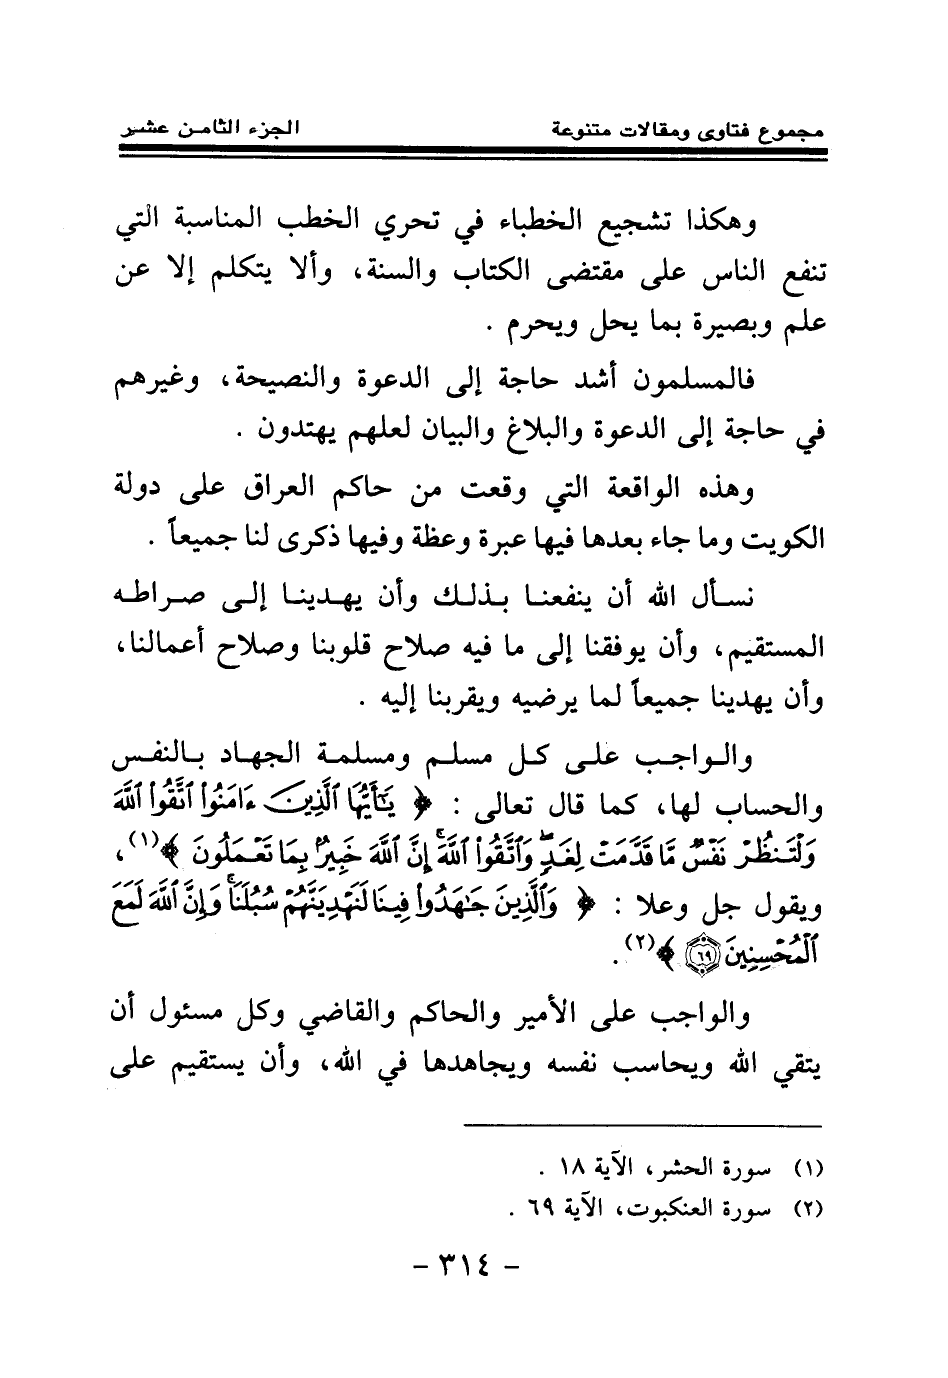 مجموع فتاوى ومقالات متنوعة الجزء الثامن عشر
وهكذا تشجيع الخطباء في تحري الخطب المناسبة التي
تنفع الناس على مقتضى الكتاب والسنة، وألا يتكلم إلا عن
علم وبصيرة بما يحل ويحرم .
فالمسلمون أشد حاجة إلى الدعوة والنصيحة، وغيرهم
في حاجة إلى الدعوة والبلاغ والبيان لعلهم يهتدون .
وهذه الواقعة التي وقعت من حاكم العراق على دولة
الكويت وما جاء بعدها فيها عبرة وعظة وفيها ذكرى لنا جميعاً .
نسأل الله أن ينفعنا بذلك وأن يهدينا إلى صراطه
المستقيم، وأن يوفقنا إلى ما فيه صلاح قلوبنا وصلاح أعمالنا،
وأن يهدينا جميعاً لما يرضيه ويقربنا إليه .
والواجب على كل مسلم ومسلمة الجهاد بالنفس
والحساب لها، كما قال تعالى : ﴿ يَٰٓأَيُّهَا ٱلَّذِينَ ءَامَنُوا۟ ٱتَّقُوا۟ ٱللَّهَ
وَلْتَنظُرْ نَفْسٌ مَّا قَدَّمَتْ لِغَدٍ ۖ وَٱتَّقُوا۟ ٱللَّهَ ۚ إِنَّ ٱللَّهَ خَبِيرٌۢ بِمَا تَعْمَلُونَ ﴾(١)،
ويقول جل وعلا : ﴿ وَٱلَّذِينَ جَٰهَدُوا۟ فِينَا لَنَهْدِيَنَّهُمْ سُبُلَنَا ۚ وَإِنَّ ٱللَّهَ لَمَعَ
ٱلْمُحْسِنِينَ ٦٩ ﴾(٢).
والواجب على الأمير والحاكم والقاضي وكل مسئول أن
يتقي الله ويحاسب نفسه ويجاهدها في الله، وأن يستقيم على
(١) سورة الحشر، الآية ١٨ .
(٢) سورة العنكبوت، الآية ٦٩ .
- ٣١٤ -